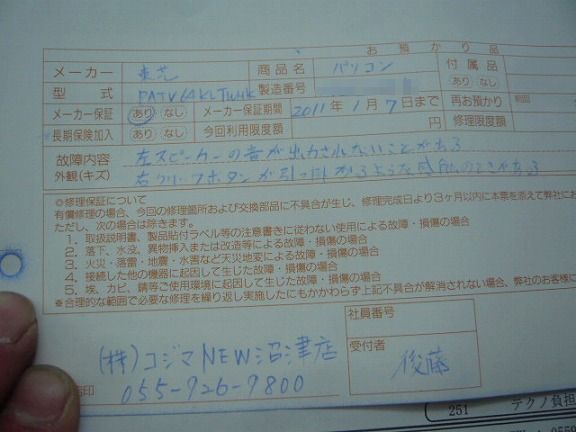 お預かり品
メーカー 東芝 商品名 パソコン 付属品
型式 PATV64KLTWHK 製造番号 あり なし
メーカー保証 あり なし メーカー保証期間 2011年1月7日まで 再お預かり 前回
長期保険加入 あり なし 今回利用限度額 円 修理限度額
故障内容 左スピーカーの音が出力されないことがある
外観(キズ) 右クリックボタンが引っかかるような感触のときがある
※修理保証について
有償修理の場合、今回の修理箇所および交換部品に不具合が生じ、修理完成日より3ヶ月以内に本票を添えて弊社にお
ただし、次の場合は除きます。
1．取扱説明書、製品貼付ラベル等の注意書きに従わない使用による故障・損傷の場合
2．落下、水没、異物挿入または改造等による故障・損傷の場合
3．火災・落雷・地震・水害など天災地変による故障・損傷の場合
4．接続した他の機器に起因して生じた故障・損傷の場合
5．埃、カビ、錆等ご使用環境に起因して生じた故障・損傷の場合
※合理的な範囲で必要な修理を繰り返し実施したにもかかわらず上記不具合が解消されない場合、弊社のお客様に
社員番号
(株)コジマNEW沼津店
受付者 後藤
店印 055-926-9800
251 テクノ負担